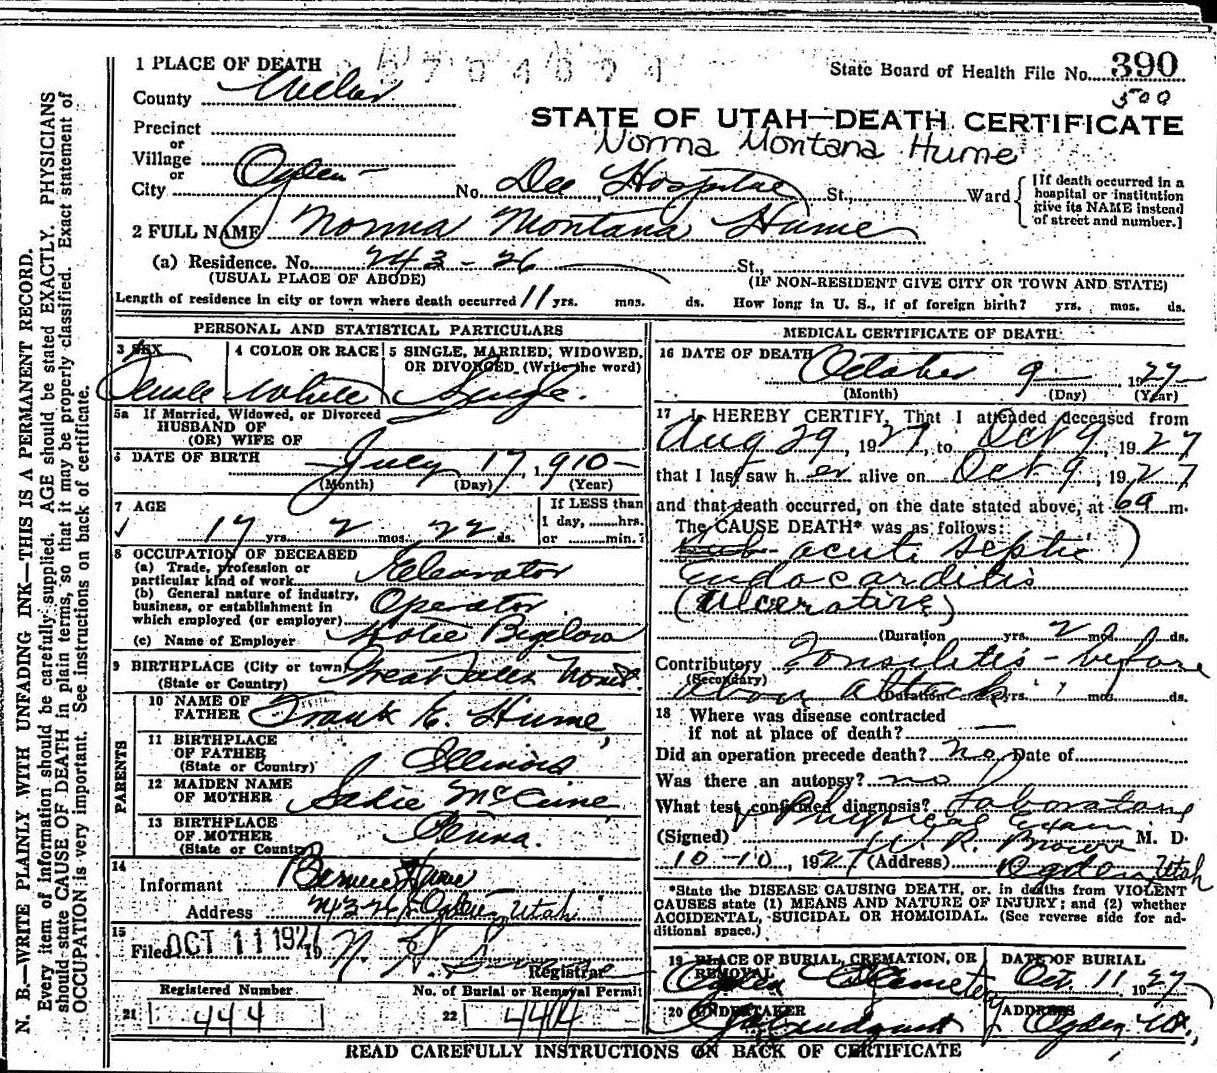 1 PLACE OF DEATH
State Board of Health File No. 390
500
County Weber
STATE OF UTAH—DEATH CERTIFICATE
Norma Montana Hume
Precinct
or
Village
or
City Ogden No. Dee Hospital St., Ward
[If death occurred in a
hospital or institution
give its NAME instead
of street and number.]
2 FULL NAME Norma Montana Hume
(a) Residence. No. 243-26 St.,
(USUAL PLACE OF ABODE) (IF NON-RESIDENT GIVE CITY OR TOWN AND STATE)
Length of residence in city or town where death occurred 11 yrs. mos. ds. How long in U. S., if of foreign birth? yrs. mos. ds.
PERSONAL AND STATISTICAL PARTICULARS
3 SEX 4 COLOR OR RACE 5 SINGLE, MARRIED, WIDOWED,
OR DIVORCED (Write the word)
Female White Single.
5a If Married, Widowed, or Divorced
HUSBAND OF
(OR) WIFE OF
6 DATE OF BIRTH July 17, 1910
(Month) (Day) (Year)
7 AGE If LESS than
17 yrs. 2 mos. 22 ds. 1 day, hrs.
or min.?
8 OCCUPATION OF DECEASED
(a) Trade, profession or
particular kind of work Elevator
(b) General nature of industry,
business, or establishment in
which employed (or employer) Operator
(c) Name of Employer Hotel Bigelow
9 BIRTHPLACE (City or town) Great Falls Mont.
(State or Country)
PARENTS
10 NAME OF
FATHER Frank E. Hume
11 BIRTHPLACE
OF FATHER Illinois
(State or Country)
12 MAIDEN NAME
OF MOTHER Sadie McCune
13 BIRTHPLACE
OF MOTHER Penna.
(State or Country)
14
Informant Hume
Address Ogden, Utah
15
Filed OCT 11 1927 19
Registrar
Registered Number No. of Burial or Removal Permit
21 444 22 444
MEDICAL CERTIFICATE OF DEATH
16 DATE OF DEATH October 9 1927
(Month) (Day) (Year)
17 I HEREBY CERTIFY, That I attended deceased from
Aug 29, 1927, to Oct 9, 1927
that I last saw h er alive on Oct 9, 1927
and that death occurred, on the date stated above, at 6a m.
The CAUSE DEATH* was as follows:
Sub acute septic
Endocarditis
(Ulcerative)
(Duration yrs. 2 mos. ds.
Contributory Tonsilitis - before
(Secondary)
attack (Duration yrs. mos. ds.
18 Where was disease contracted
if not at place of death?
Did an operation precede death? no Date of
Was there an autopsy? no
What test confirmed diagnosis? Laboratory
Physical Exam
(Signed) W. R. Brown M. D.
10-10, 1927 (Address) Ogden, Utah
*State the DISEASE CAUSING DEATH, or, in deaths from VIOLENT
CAUSES state (1) MEANS AND NATURE OF INJURY; and (2) whether
ACCIDENTAL, SUICIDAL OR HOMICIDAL. (See reverse side for ad-
ditional space.)
19 PLACE OF BURIAL, CREMATION, OR DATE OF BURIAL
REMOVAL
Ogden Cemetery Oct. 11 1927
20 UNDERTAKER ADDRESS
Lindquist Ogden Ut.
READ CAREFULLY INSTRUCTIONS ON BACK OF CERTIFICATE
N. B.—WRITE PLAINLY WITH UNFADING INK—THIS IS A PERMANENT RECORD.
Every item of information should be carefully supplied. AGE should be stated EXACTLY. PHYSICIANS
should state CAUSE OF DEATH in plain terms, so that it may be properly classified. Exact statement of
OCCUPATION is very important. See instructions on back of certificate.